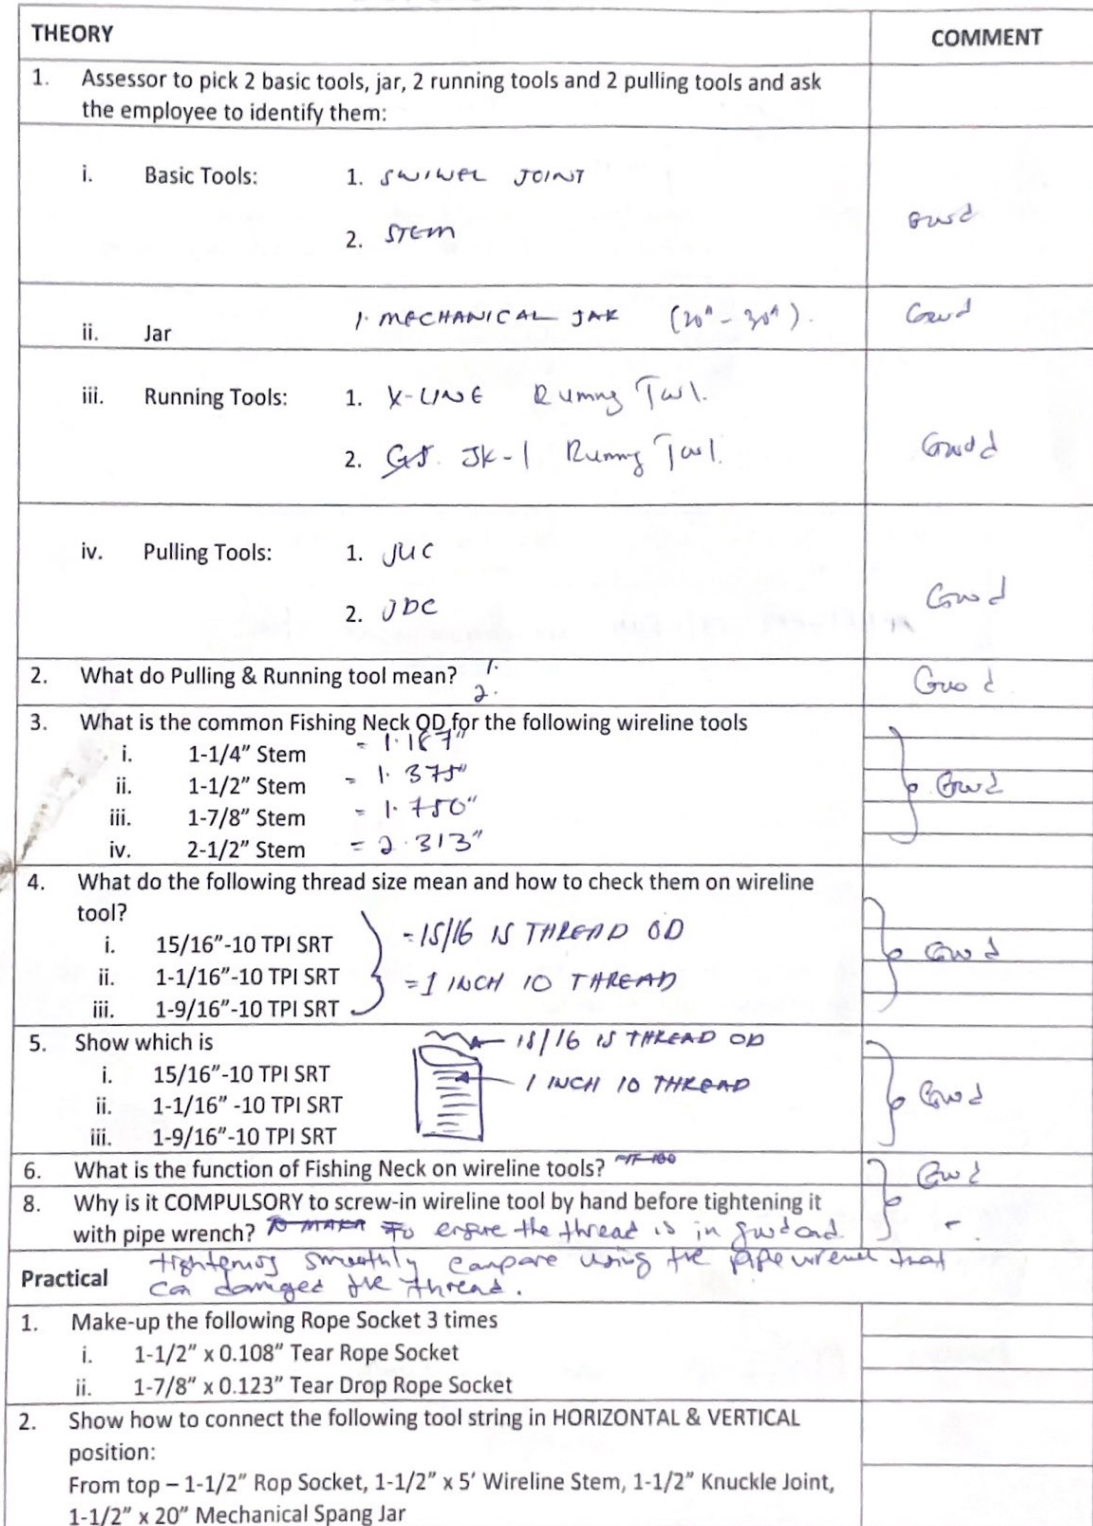 THEORY COMMENT
1. Assessor to pick 2 basic tools, jar, 2 running tools and 2 pulling tools and ask
the employee to identify them:
i. Basic Tools: 1. SWIWEL JOINT
Good
2. STEM
ii. Jar 1. MECHANICAL JAR (20" - 30"). Good
iii. Running Tools: 1. X-LINE Running Tool.
2. GS. JK-1 Running Tool. Good
iv. Pulling Tools: 1. JUC
2. JDC Good
2. What do Pulling & Running tool mean? 1. Good
2.
3. What is the common Fishing Neck OD for the following wireline tools
i. 1-1/4" Stem = 1.187"
ii. 1-1/2" Stem = 1.375" Good
iii. 1-7/8" Stem = 1.750"
iv. 2-1/2" Stem = 2.313"
4. What do the following thread size mean and how to check them on wireline
tool?
i. 15/16"-10 TPI SRT = 15/16 IS THREAD OD Good
ii. 1-1/16"-10 TPI SRT = 1 INCH 10 THREAD
iii. 1-9/16"-10 TPI SRT
5. Show which is 15/16 IS THREAD OD
i. 15/16"-10 TPI SRT 1 INCH 10 THREAD Good
ii. 1-1/16" -10 TPI SRT
iii. 1-9/16"-10 TPI SRT
6. What is the function of Fishing Neck on wireline tools? Good
8. Why is it COMPULSORY to screw-in wireline tool by hand before tightening it
with pipe wrench? TO MAKE To ensure the thread is in good and
tightening smoothly compare using the pipe wrench that
Practical can damaged the thread.
1. Make-up the following Rope Socket 3 times
i. 1-1/2" x 0.108" Tear Rope Socket
ii. 1-7/8" x 0.123" Tear Drop Rope Socket
2. Show how to connect the following tool string in HORIZONTAL & VERTICAL
position:
From top – 1-1/2" Rop Socket, 1-1/2" x 5' Wireline Stem, 1-1/2" Knuckle Joint,
1-1/2" x 20" Mechanical Spang Jar